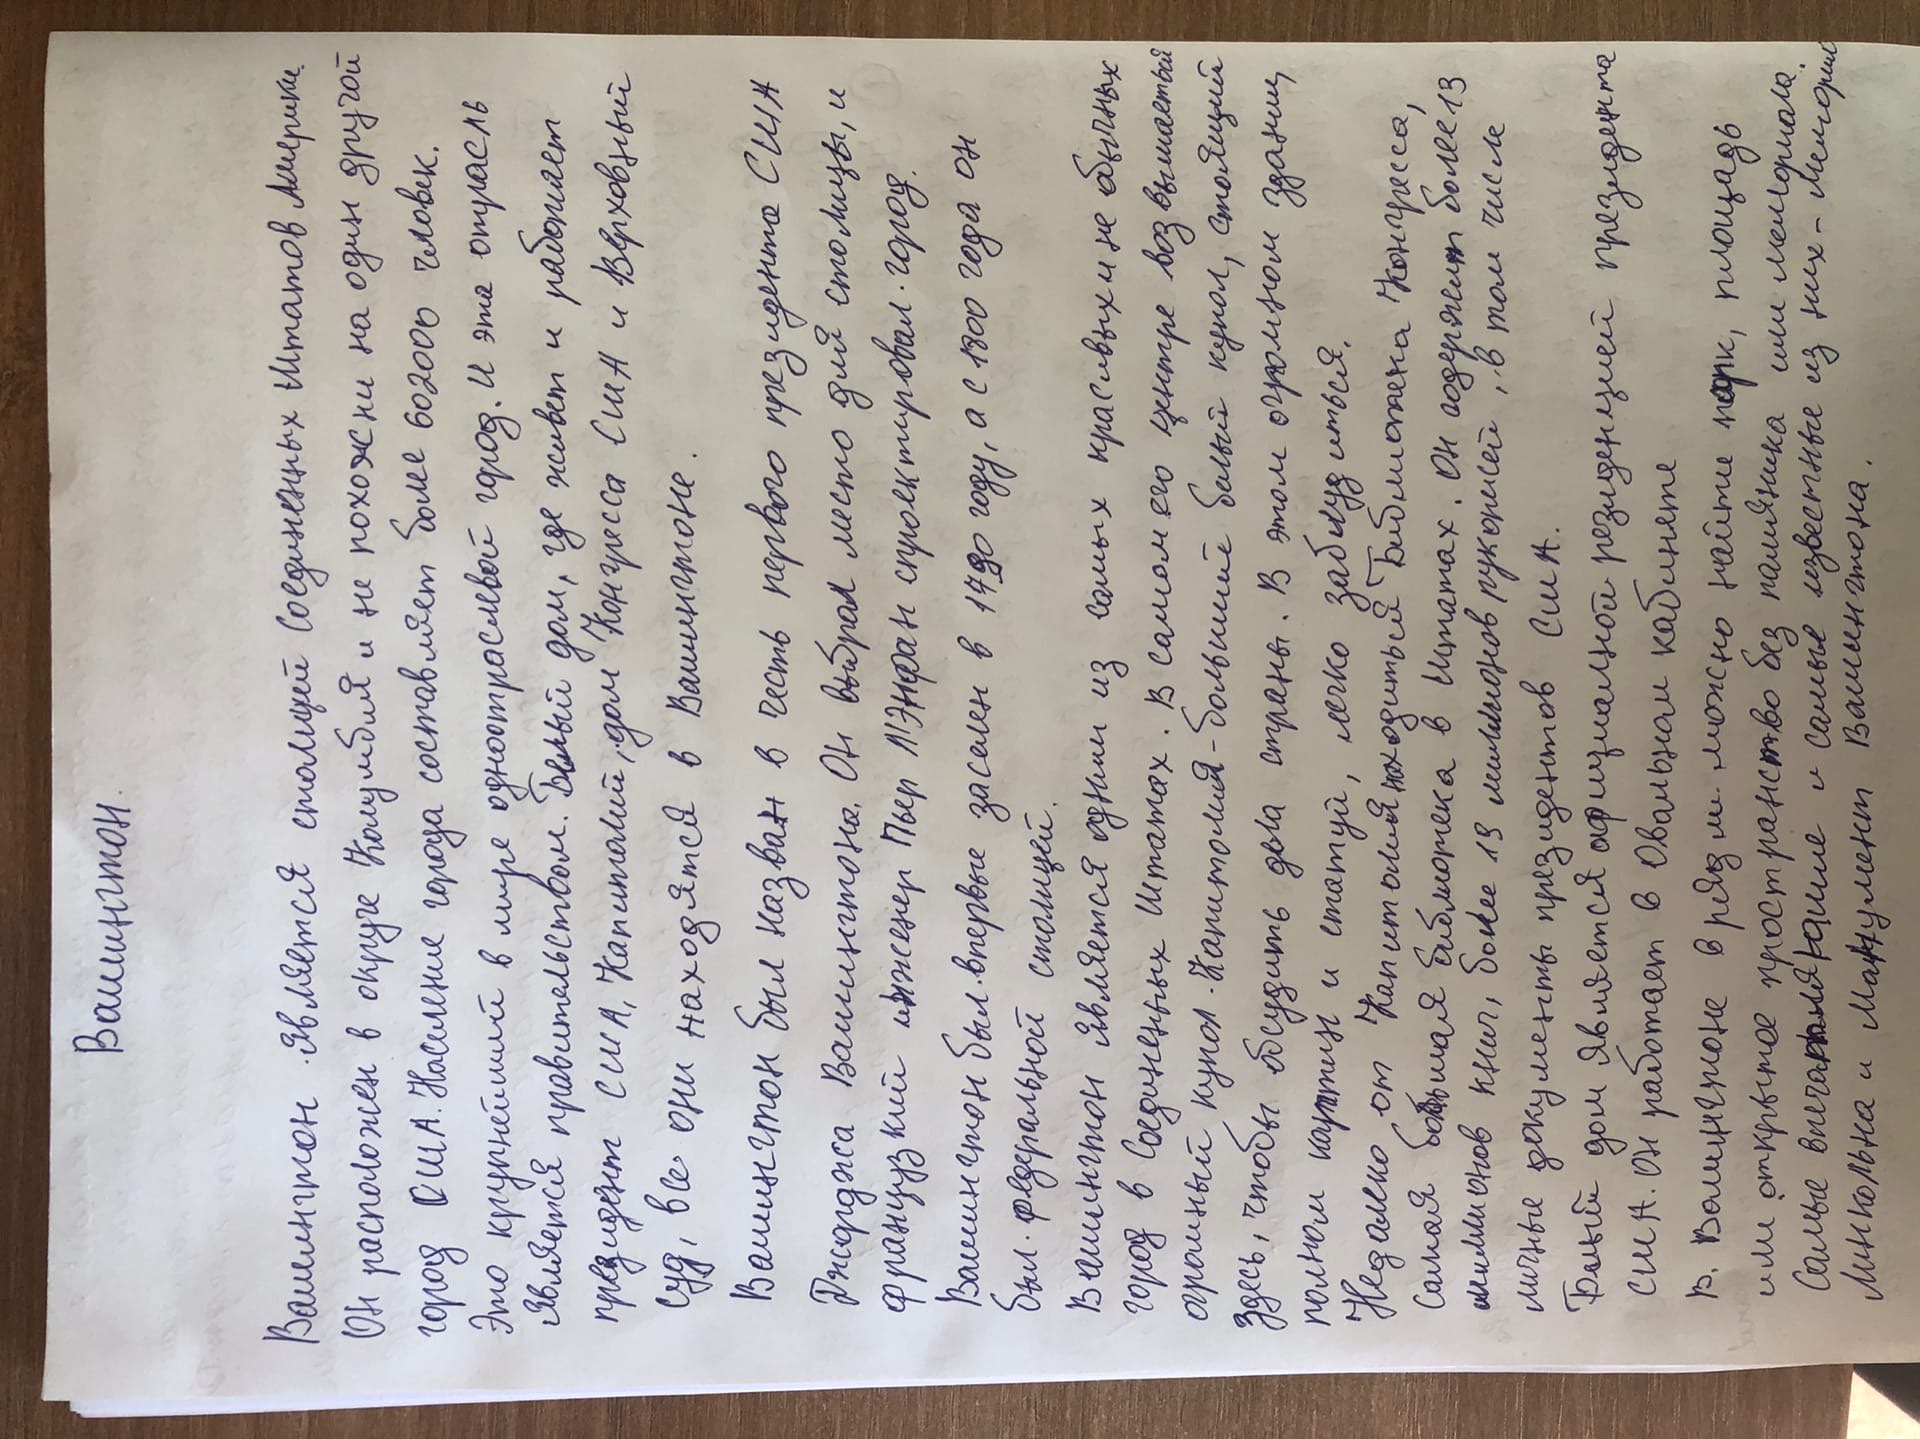 Вашингтон.
Вашингтон является столицей Соединеных Штатов Америки.
Он расположен в округе Колумбия и не похожи на один другой
город США. Население города составляет более 602000 человек.
Это крупнейший в мире одноотраслевой город. И эта отрасль
является правительством. Белый дом, где живет и работает
президент США, Капитолий, дом Конгресса США и Верховный
суд, все они находятся в Вашингтоне.
Вашингтон был назван в честь первого президента США
Джорджа Вашингтона. Он выбрал место для столицы, и
французкий инженер Пьер Л'Энфан спроектировал город.
Вашингтон был впервые заселен в 1790 году, а с 1800 года он
был федеральной столицей.
Вашингтон является одним из самых красивых и не обычных
город в Соединеных Штатах. В самом его центре возвышается
огромный купол Капитолия-большой белый купол, стоящий
Здесь, чтобы обсудить дела страны. В этом огромном здании,
полном картин и статуй, легко заблудиться.
Недалеко от Капитолия находиться Библиотека Конгресса,
самая большая библиотека в Штатах. Он содержит более 13
миллионов книг, более 19 миллионов рукописей, в том числе
личные документы президентов США.
Белый дом является официальной резиденцией президента
США. Он работает в Овальном кабинете
В. Вашингтоне в ряд ли можно найти парк, площадь
или открытое пространство без памятника или мемориала.
Самые впечатляющие и самые известные из них-Мемориал
Линкольна и Манумент Вашингтона.